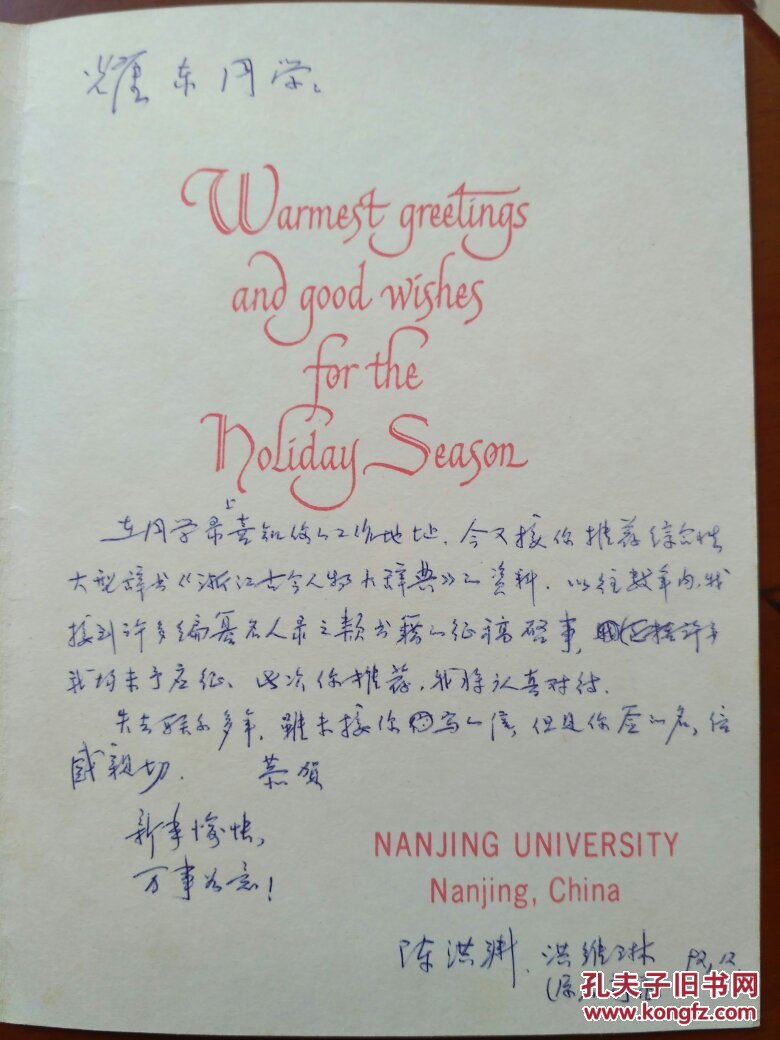 耀东同学:
Warmest greetings
and good wishes
for the
Holiday Season
在同学录上喜知你的工作地址,今又接你推荐综合性
大型辞书《浙江古今人物大辞典》的资料。以往数年内,我
接到许多编纂名人录之类书籍的征稿启事,
我均未予应征、此次你推荐,我将认真对待。
失去联系多年,雖未接你写的信,但是你签的名,倍
感親切. 恭贺
新年愉快,
万事如意!
NANJING UNIVERSITY
Nanjing, China
陈洪渊、洪维琳 92,12
孔夫子旧书网
www.kongfz.com